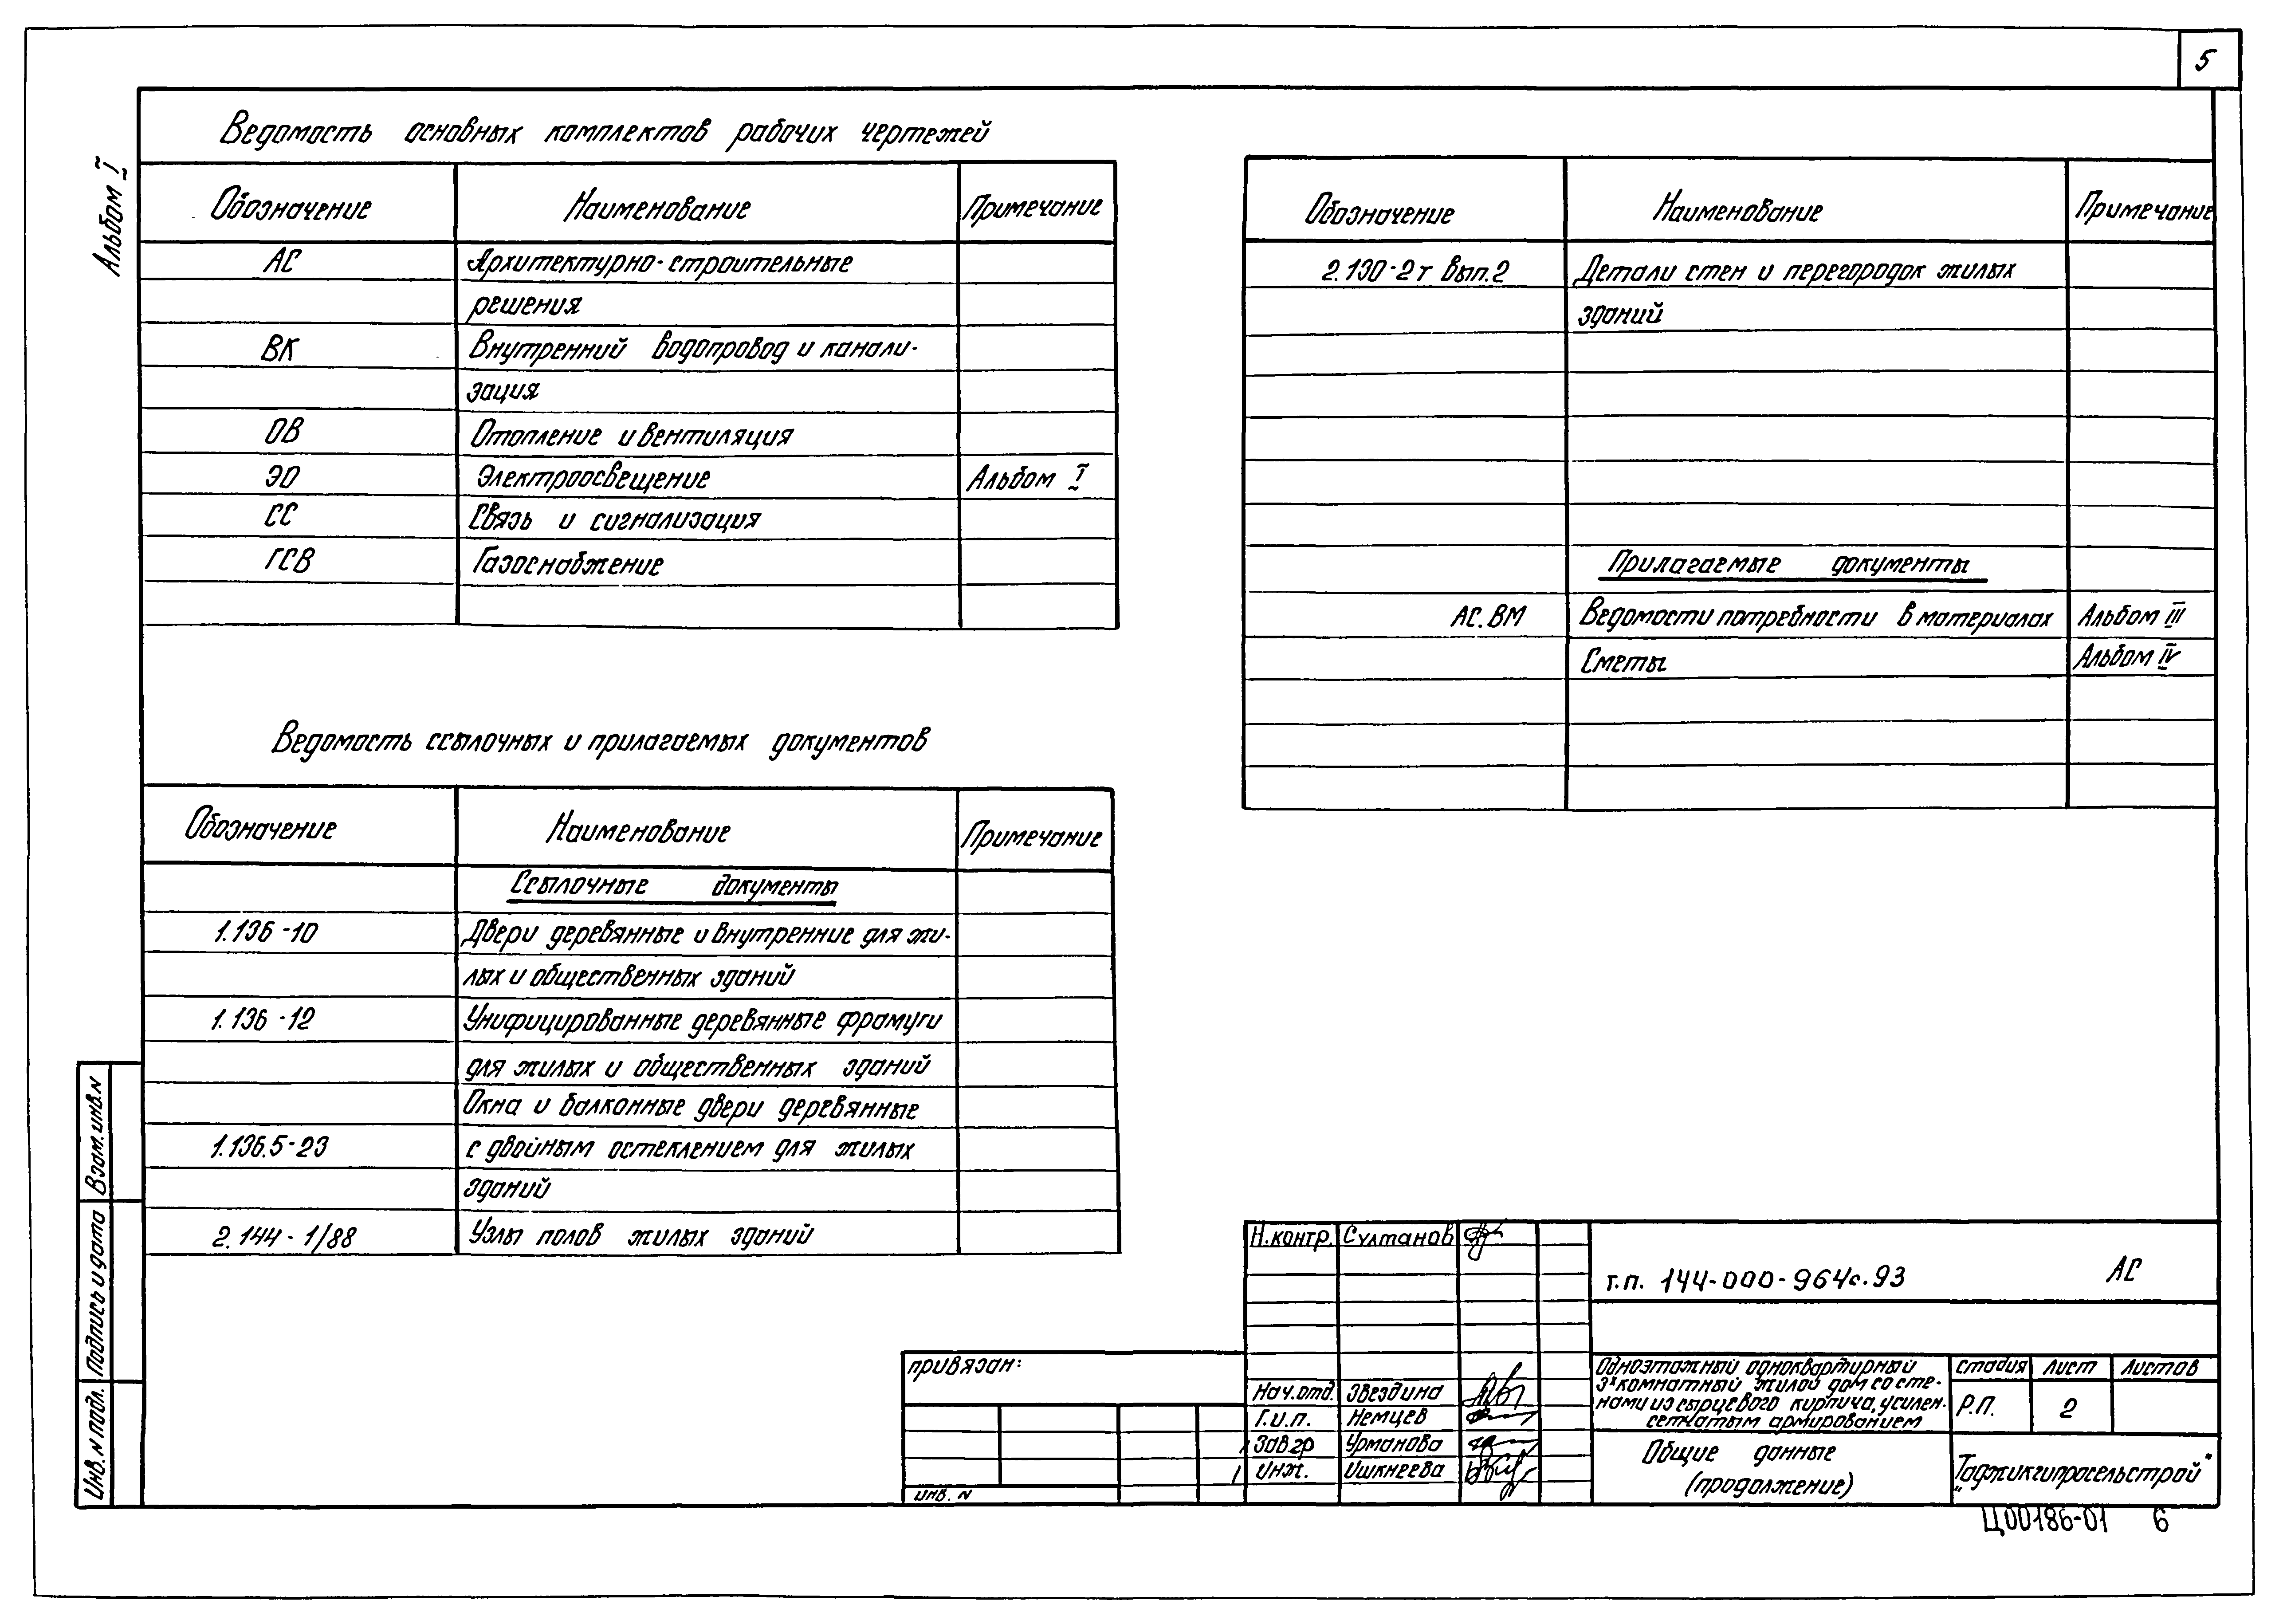 5
Альбом I
Ведомость основных комплектов рабочих чертежей
Обозначение Наименование Примечание
АС Архитектурно-строительные
решения
ВК Внутренний водопровод и канали-
зация
ОВ Отопление и вентиляция
ЭО Электроосвещение Альбом I
СС Связь и сигнализация
ГСВ Газоснабжение
Ведомость ссылочных и прилагаемых документов
Обозначение Наименование Примечание
Ссылочные документы
1.136-10 Двери деревянные и внутренние для жи-
лых и общественных зданий
1.136-12 Унифицированные деревянные фрамуги
для жилых и общественных зданий
Окна и балконные двери деревянные
1.136.5-23 с двойным остеклением для жилых
зданий
2.144-1/88 Узлы полов жилых зданий
Обозначение Наименование Примечание
2.130-2т вып.2 Детали стен и перегородок жилых
зданий
Прилагаемые документы
АС.ВМ Ведомости потребности в материалах Альбом III
Сметы Альбом IV
Взам.инв.N
Подпись и дата
Инв.N подл.
привязан:
инв. N
Н.контр. Султанов
Нач.отд. Звездина
Г.и.п. Немцев
Зав.гр Урманова
Инж. Ишкнеева
т.п. 144-000-964с.93 АС
Одноэтажный одноквартирный
3х комнатный жилой дом со сте-
нами из сырцевого кирпича, усилен.
сетчатым армированием
стадия лист листов
Р.П. 2
Общие данные
(продолжение)
"Таджикгипросельстрой"
Ц00186-01 6